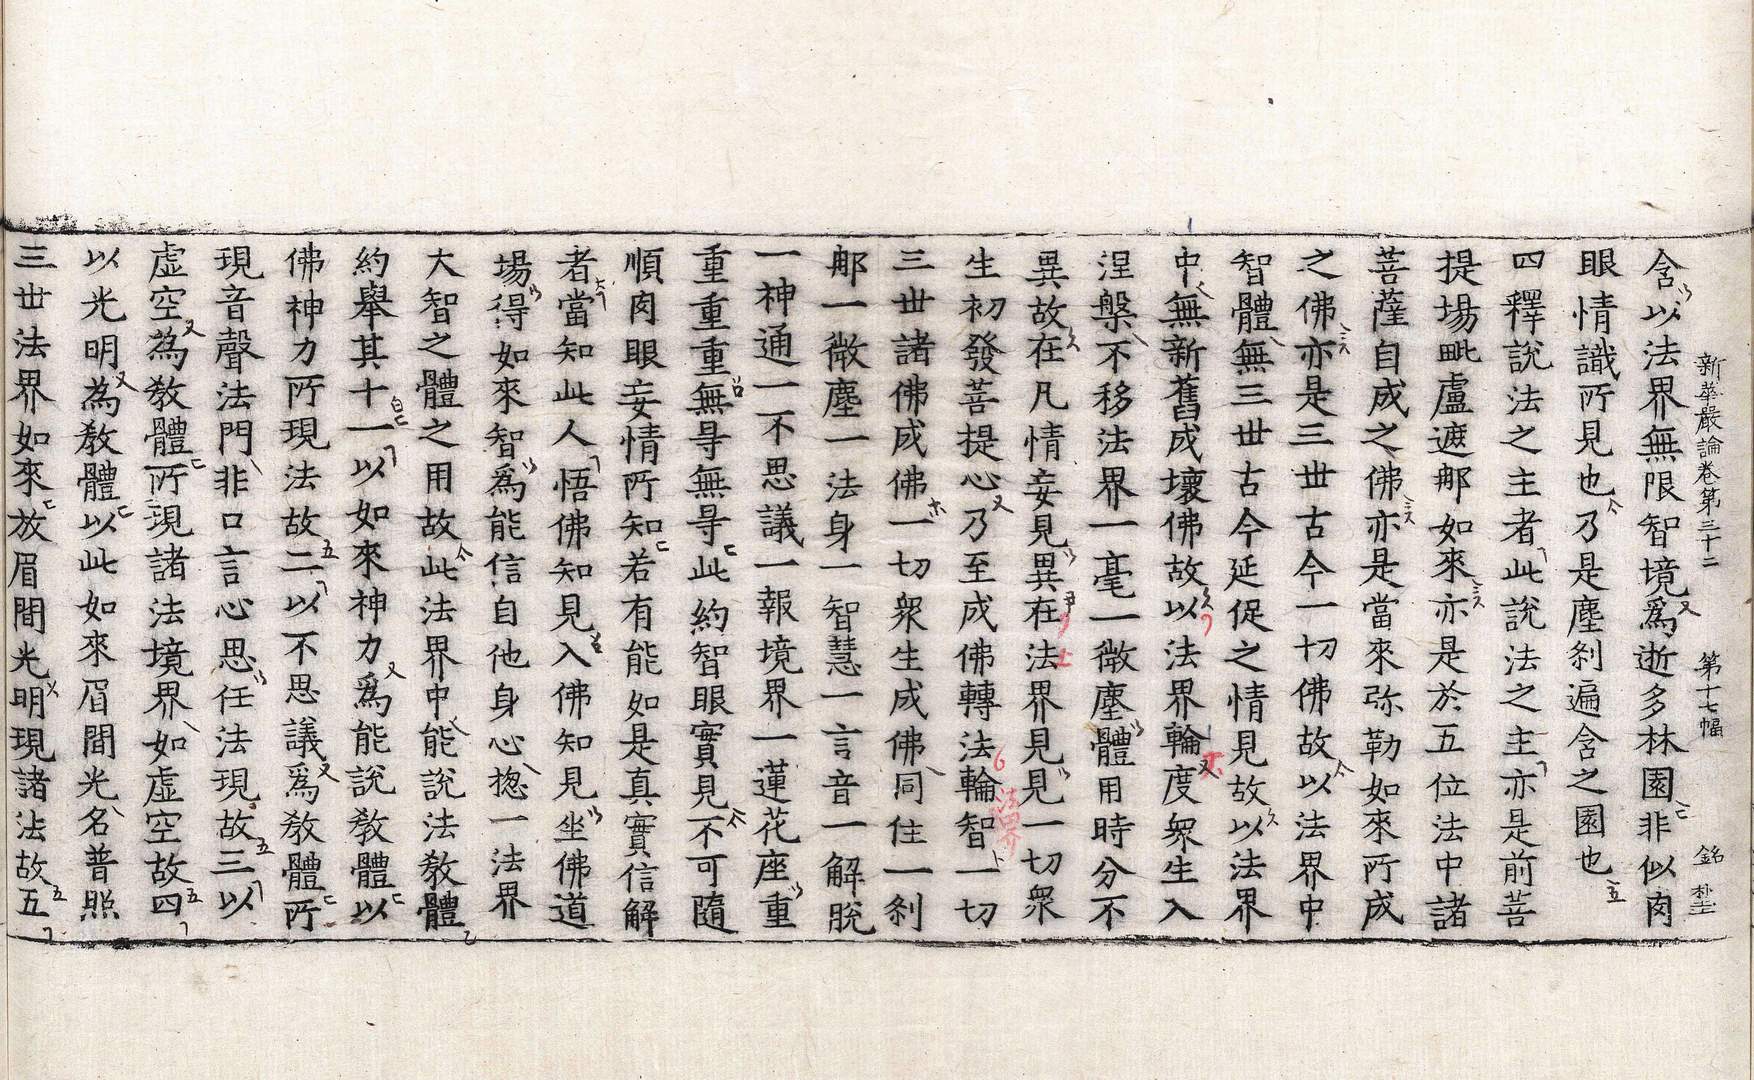 新華嚴論卷第三十二 第十七幅 銘
含以法界無限智境爲逝多林園非似肉
眼情識所見也乃是塵刹遍含之園也
四釋說法之主者此說法之主亦是前菩
提場毗盧遮郍如來亦是於五位法中諸
菩薩自成之佛亦是當來弥勒如來所成
之佛亦是三世古今一切佛故以法界中
智體無三世古今延促之情見故以法界
中無新舊成壞佛故以法界輪度衆生入
涅槃不移法界一毫一微塵體用時分不
異故在凡情妄見異在法界見見一切衆
生初發菩提心乃至成佛轉法輪智一切
三世諸佛成佛一切衆生成佛同住一刹
郍一微塵一法身一智慧一言音一解脫
一神通一不思議一報境界一蓮花座重
重重重無㝵無㝵此約智眼實見不可隨
順肉眼妄情所知若有能如是真實信解
者當知此人悟佛知見入佛知見坐佛道
場得如來智爲能信自他身心惣一法界
大智之體之用故此法界中能說法敎體
約舉其十一以如來神力爲能說敎體以
佛神力所現法故二以不思議爲敎體所
現音聲法門非口言心思任法現故三以
虛空爲敎體所現諸法境界如虛空故四
以光明爲敎體以此如來眉間光名普照
三世法界如來放眉間光明現諸法故五